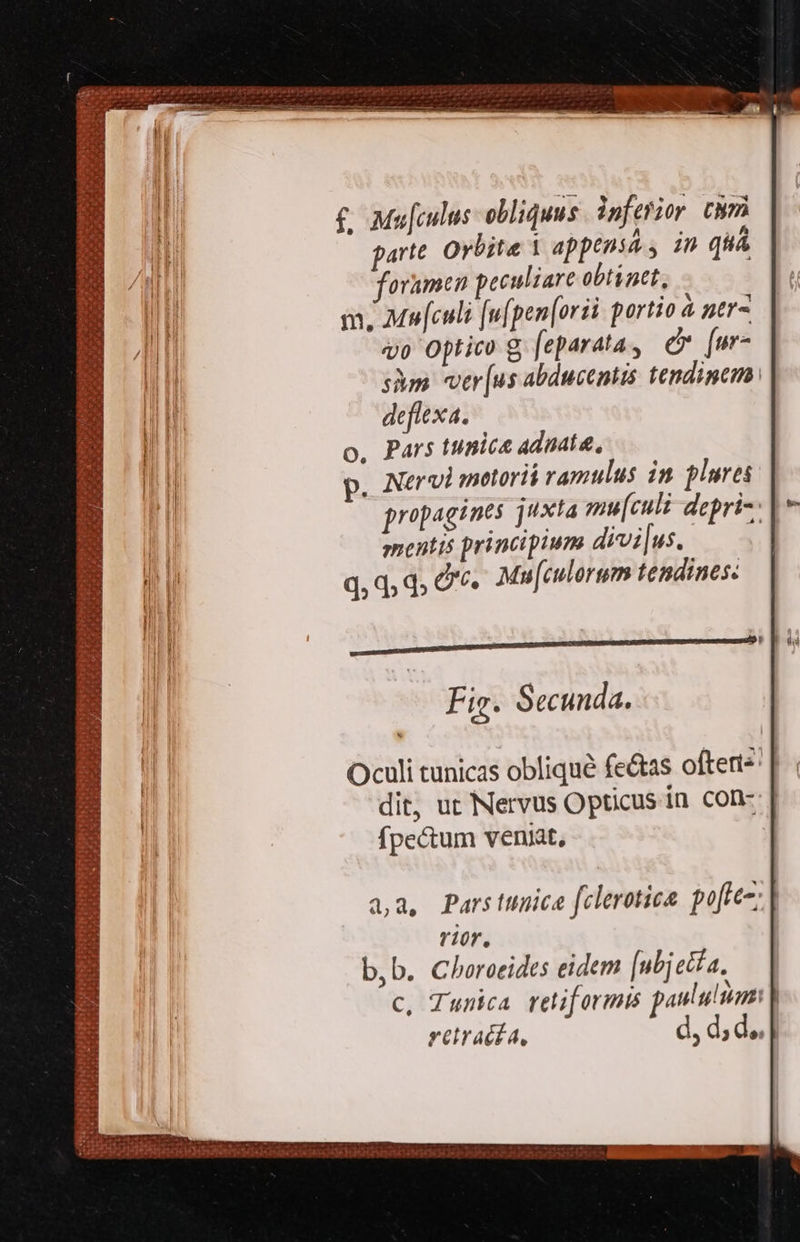 f, Muſculus obliquus inferior cum
parte Orbitæ i appensâ, in quâ
foramen peculiare obtinet,
m, Muſculi ſuſpenſorii portio à ner-
vo Optico g ſeparata, & ſur-
sùm verſus abducentis tendinem
deflexa.
o, Pars tunicæ adnatæ,
p. Nervi motorii ramulus in plures
propagines juxta muſculi depri-
mentis principium diviſus,
q, q, q, &c. Muſculorum tendines.
Fig. Secunda.
Oculi tunicas obliquè ſectas oſten-
dit, ut Nervus Opticus in con-
ſpectum veniat,
a, a, Pars tunicæ ſcleroticæ poſte-
rior,
b, b. Choroeides eidem ſubjecta,
c, Tunica retiformis paululùm
retracta, d, d, d,